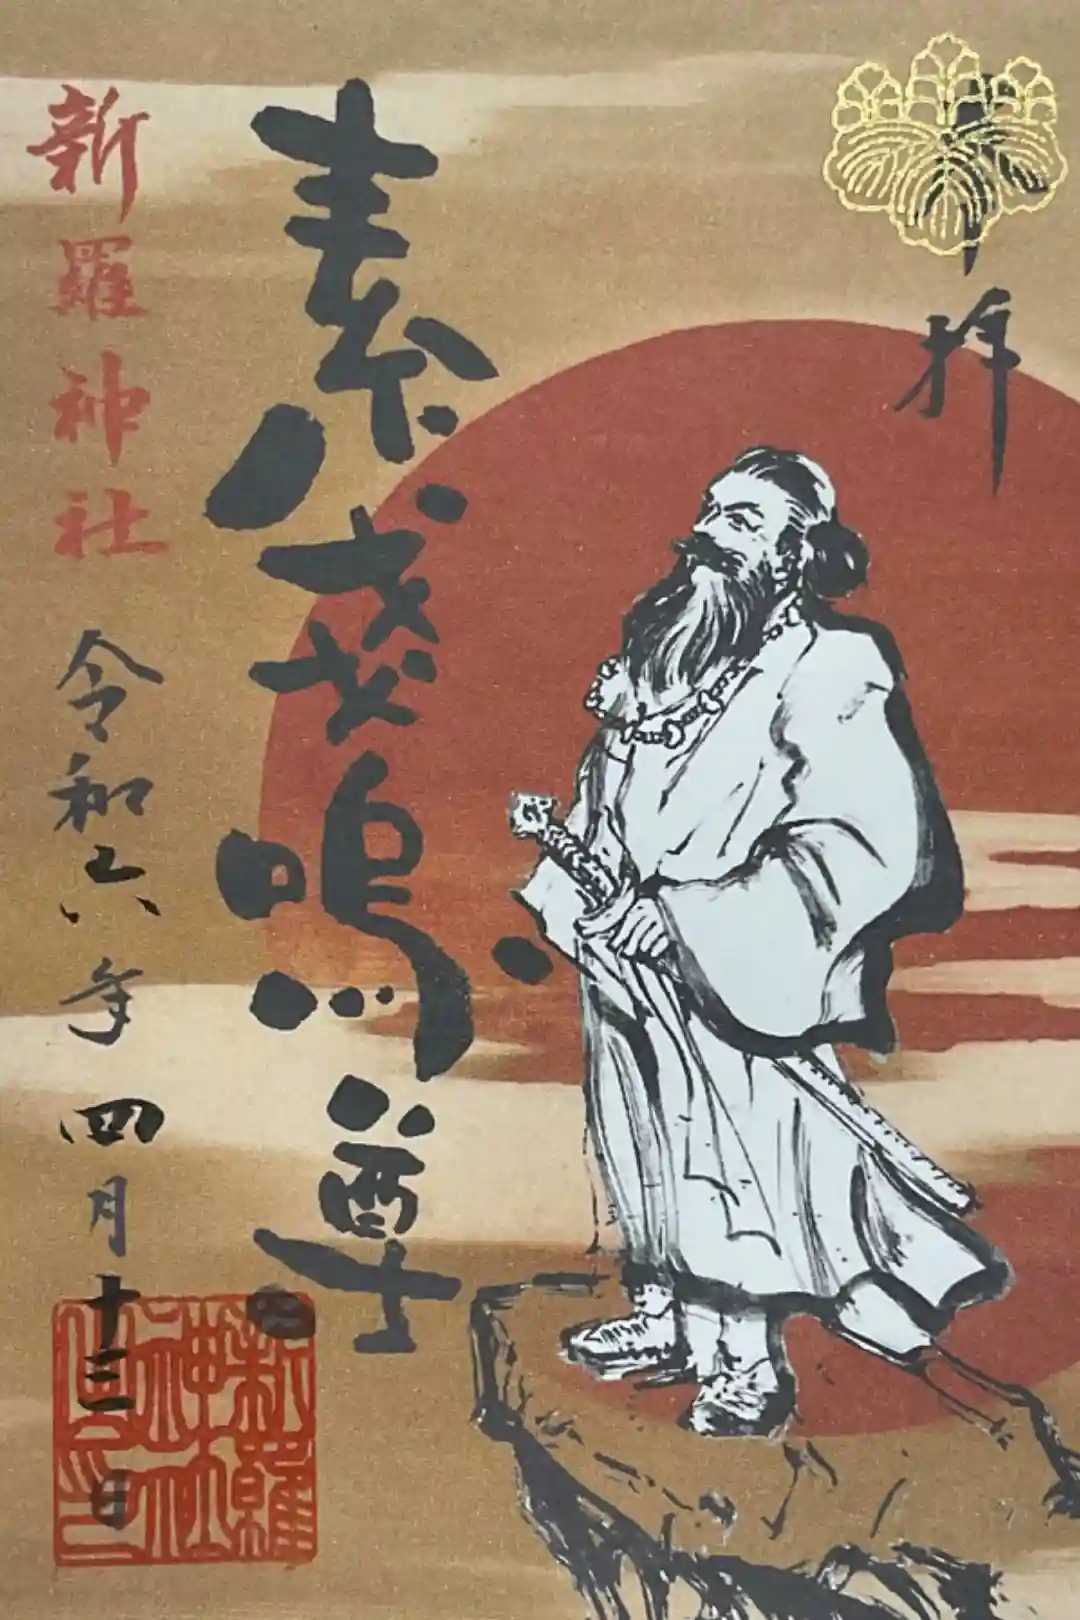 奉拝
素戔嗚尊
新羅神社
令和六年四月十三日
新羅神社之印